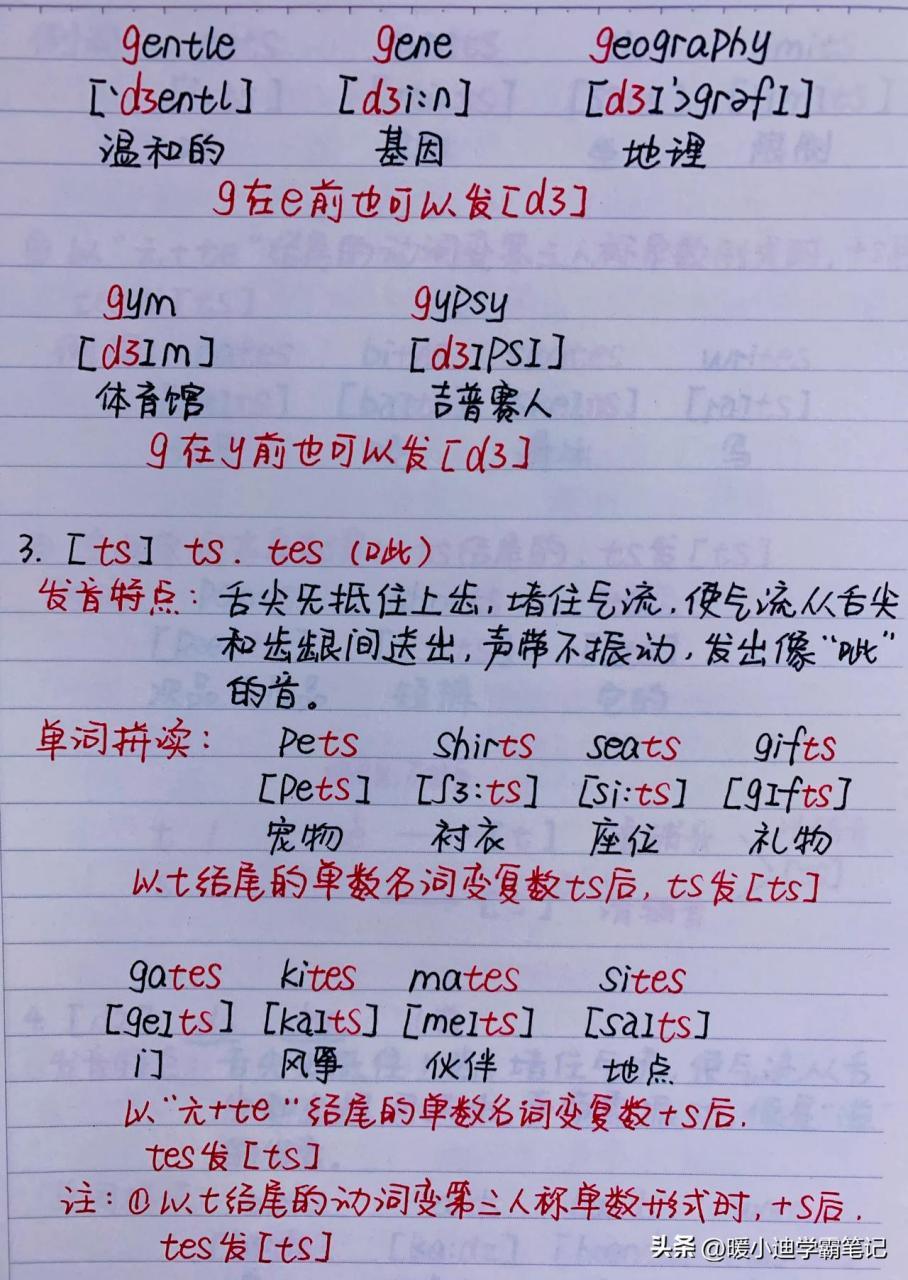 gentle gene geography
[ˈdʒentl] [dʒi:n] [dʒɪˈɔgrəfɪ]
温和的 基因 地理
g在e前也可以发[dʒ]
gym gypsy
[dʒɪm] [dʒɪpsɪ]
体育馆 吉普赛人
g在y前也可以发[dʒ]
3. [ts] ts. tes (呲)
发音特点: 舌尖先抵住上齿, 堵住气流, 使气流从舌尖
和齿龈间送出, 声带不振动, 发出像“呲”
的音。
单词拼读: pets shirts seats gifts
[pets] [ʃɜ:ts] [si:ts] [gɪfts]
宠物 衬衣 座位 礼物
以t结尾的单数名词变复数ts后, ts发[ts]
gates kites mates sites
[geɪts] [kaɪts] [meɪts] [saɪts]
门 风筝 伙伴 地点
以“元+te”结尾的单数名词变复数+s后.
tes发[ts]
注: ①以t结尾的动词变第三人称单数形式时, +s后.
tes发[ts]
头条 @暖小迪学霸笔记